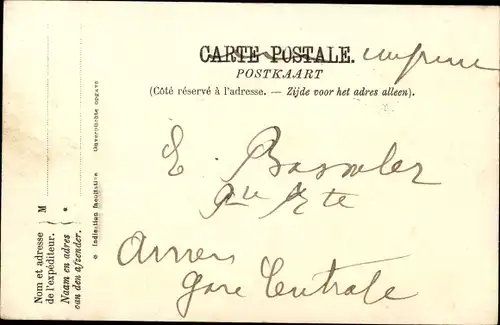 CARTE POSTALE. imprimé
POSTKAART
(Côté réservé à l'adresse. — Zijde voor het adres alleen).
E.
Anvers
Gare Centrale
Nom et adresse
de l'expéditeur.
Naam en adres
van den afzender.
M
* Indication facultative
Onverplichte opgave